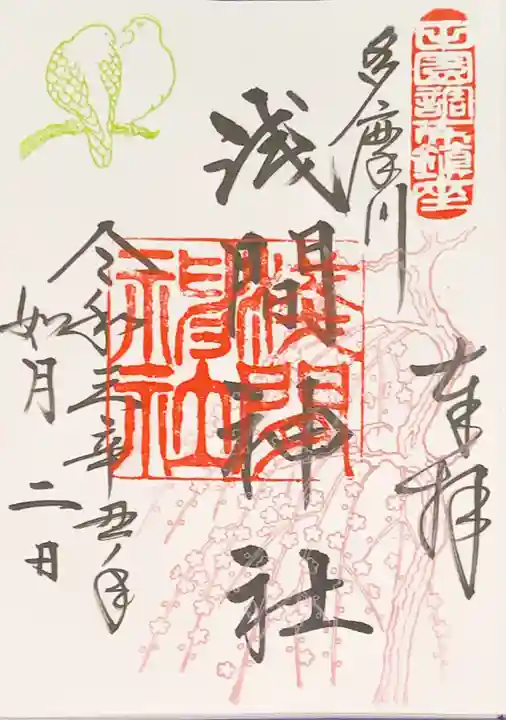 田園調布鎮座
奉拝
多摩川
浅間神社
浅間神社
令和三辛丑年
如月二日